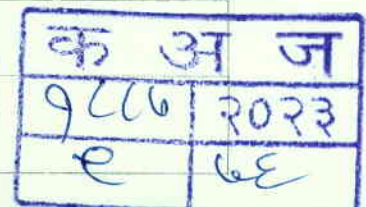 क अ ज
१८८७ २०२३
९ ७६